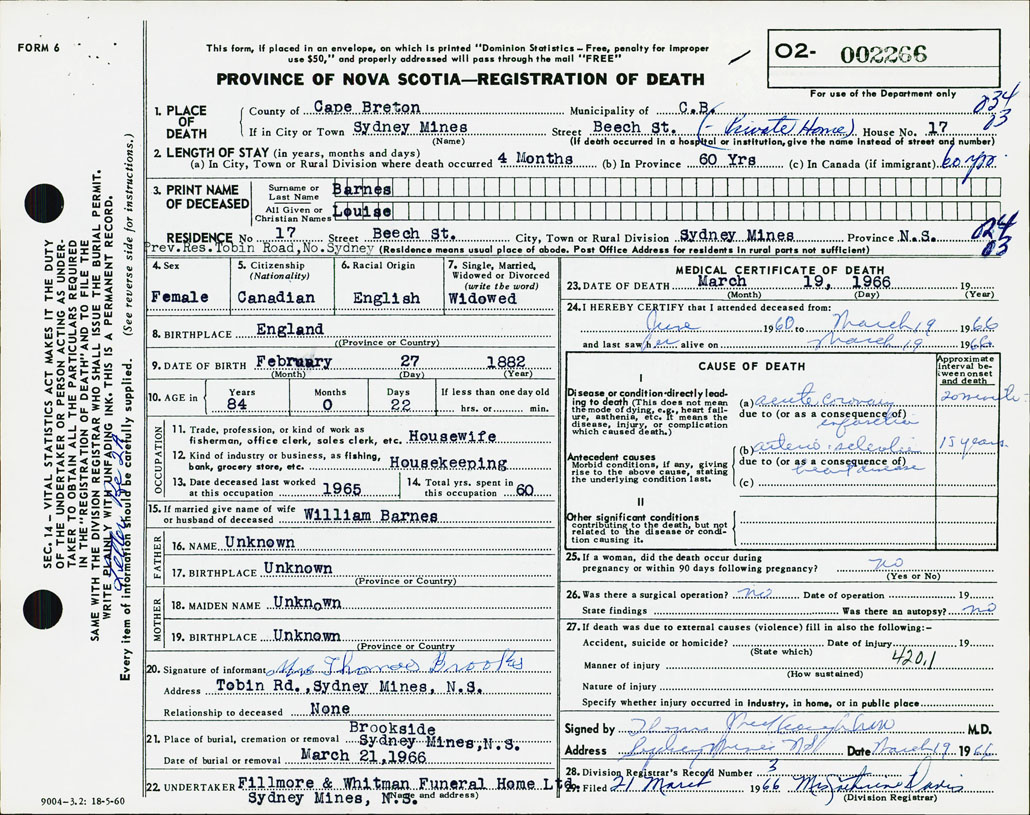 FORM 6
This form, if placed in an envelope, on which is printed "Dominion Statistics – Free, penalty for improper
use $50," and properly addressed will pass through the mail "FREE"
PROVINCE OF NOVA SCOTIA—REGISTRATION OF DEATH
02- 002266
For use of the Department only
234
03
1. PLACE OF DEATH
County of Cape Breton Municipality of C.B.
If in City or Town Sydney Mines Street Beech St. (- Private Home) House No. 17
(Name) (If death occurred in a hospital or institution, give the name instead of street and number)
2. LENGTH OF STAY (in years, months and days)
(a) In City, Town or Rural Division where death occurred 4 Months (b) In Province 60 Yrs (c) In Canada (if immigrant) 60 yrs.
3. PRINT NAME OF DECEASED
Surname or Last Name Barnes
All Given or Christian Names Louise
024
03
RESIDENCE No 17 Street Beech St. City, Town or Rural Division Sydney Mines Province N.S.
Prev.Res.Tobin Road,No.Sydney (Residence means usual place of abode. Post Office Address for residents in rural parts not sufficient)
4. Sex Female
5. Citizenship (Nationality) Canadian
6. Racial Origin English
7. Single, Married, Widowed or Divorced (write the word) Widowed
8. BIRTHPLACE England
((Province or Country)
9. DATE OF BIRTH February 27 1882
(Month) (Day) (Year)
10. AGE in Years 84 Months 0 Days 22 If less than one day old hrs. or min.
OCCUPATION
11. Trade, profession, or kind of work as fisherman, office clerk, sales clerk, etc. Housewife
12. Kind of industry or business, as fishing, bank, grocery store, etc. Housekeeping
13. Date deceased last worked at this occupation 1965
14. Total yrs. spent in this occupation 60
15. If married give name of wife or husband of deceased William Barnes
FATHER
16. NAME Unknown
17. BIRTHPLACE Unknown
(Province or Country)
MOTHER
18. MAIDEN NAME Unknown
19. BIRTHPLACE Unknown
(Province or Country)
20. Signature of informant Mrs Thomas Brooks
Address Tobin Rd.,Sydney Mines, N.S.
Relationship to deceased None
21. Place of burial, cremation or removal Brookside Sydney Mines,N.S.
Date of burial or removal March 21,1966
22. UNDERTAKER Fillmore & Whitman Funeral Home Ltd.
Sydney Mines, N.S. (Name and address)
MEDICAL CERTIFICATE OF DEATH
23. DATE OF DEATH March 19, 1966 19
(Month) (Day) (Year)
24. I HEREBY CERTIFY that I attended deceased from:
June 1960 to March 19 1966
and last saw her alive on March 19 1966.
CAUSE OF DEATH
Approximate interval between onset and death
I
Disease or condition directly leading to death (This does not mean the mode of dying, e.g., heart failure, asthenia, etc. It means the disease, injury, or complication which caused death.)
(a) acute coronary
due to (or as a consequence of)
infarction
20 minutes
Antecedent causes
Morbid conditions, if any, giving rise to the above cause, stating the underlying condition last.
(b) arterio-sclerotic 15 years
due to (or as a consequence of)
heart disease
(c)
II
Other significant conditions
contributing to the death, but not related to the disease or condition causing it.
25. If a woman, did the death occur during pregnancy or within 90 days following pregnancy? no
(Yes or No)
26. Was there a surgical operation? no Date of operation 19
State findings Was there an autopsy? no
27. If death was due to external causes (violence) fill in also the following:–
Accident, suicide or homicide? Date of injury 19
(State which)
420.1
Manner of injury
(How sustained)
Nature of injury
Specify whether injury occurred in industry, in home, or in public place
Signed by Thomas M.D.
Address Sydney Mines NS Date March 19 1966
28. Division Registrar's Record Number 3
29. Filed 21 March 1966 Mrs Davis
(Division Registrar)
SEC. 14 – VITAL STATISTICS ACT MAKES IT THE DUTY
OF THE UNDERTAKER OR PERSON ACTING AS UNDER-
TAKER TO OBTAIN ALL THE PARTICULARS REQUIRED
IN THE "REGISTRATION OF DEATH" AND TO FILE THE
SAME WITH THE DIVISION REGISTRAR WHO SHALL ISSUE THE BURIAL PERMIT.
WRITE PLAINLY WITH UNFADING INK. THIS IS A PERMANENT RECORD.
Every item of information should be carefully supplied. (See reverse side for instructions.)
Letter
9004–3.2: 18-5-60